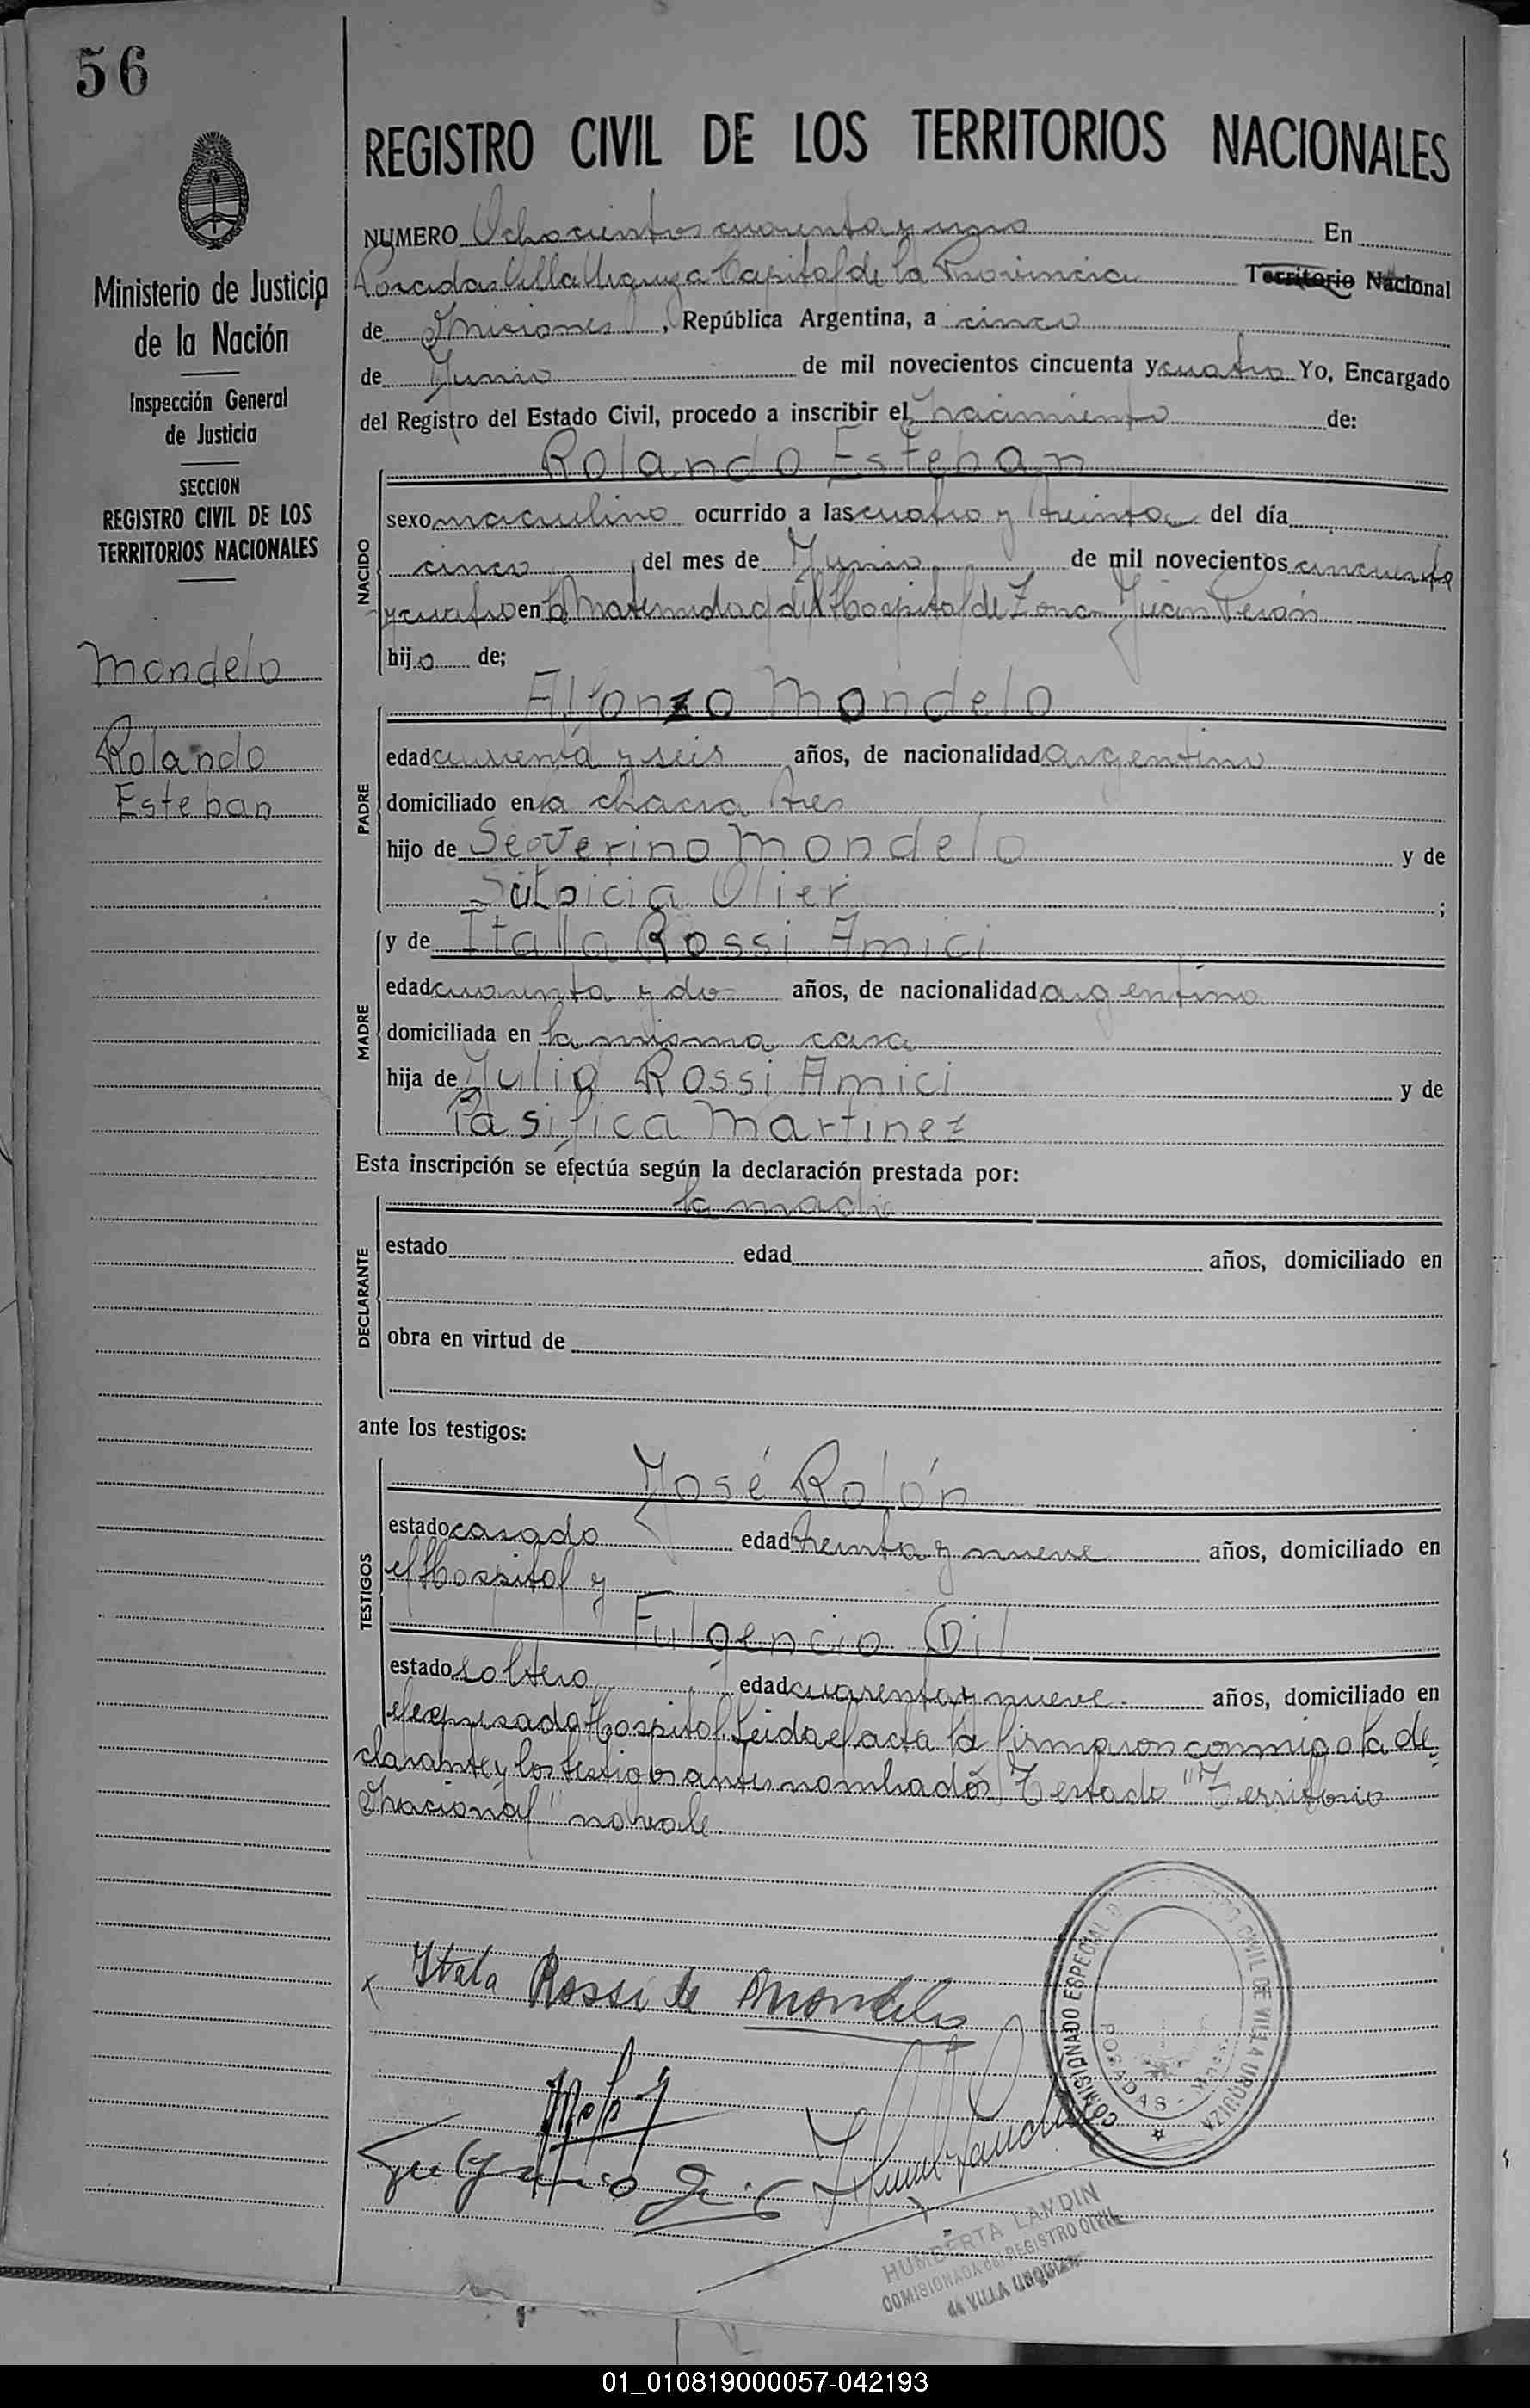 56
REGISTRO CIVIL DE LOS TERRITORIOS NACIONALES
Ministerio de Justicia
de la Nación
Inspección General
de Justicia
SECCION
REGISTRO CIVIL DE LOS
TERRITORIOS NACIONALES
Mondelo
Rolando
Esteban
NUMERO Ochocientos cuarenta y uno En
Posadas Villa Urquiza Capital de la Provincia Territorio Nacional
de Misiones, República Argentina, a cinco
de Junio de mil novecientos cincuenta y cuatro Yo, Encargado
del Registro del Estado Civil, procedo a inscribir el nacimiento de:
NACIDO
Rolando Esteban
sexo masculino ocurrido a las cuatro y treinta del día
cinco del mes de Junio de mil novecientos cincuenta
y cuatro en la Maternidad del Hospital de Zona Juan Perón
hijo de;
PADRE
Alfonzo Mondelo
edad cuarenta y seis años, de nacionalidad argentino
domiciliado en la chacra tres
hijo de Severino Mondelo y de
Sulpicia Olier ;
MADRE
y de Itala Rossi Amici
edad cuarenta y dos años, de nacionalidad argentina
domiciliada en la misma casa
hija de Julio Rossi Amici y de
Pasifica Martinez
Esta inscripción se efectúa según la declaración prestada por:
DECLARANTE
la madre
estado edad años, domiciliado en
obra en virtud de
ante los testigos:
TESTIGOS
José Rolón
estado casado edad treinta y nueve años, domiciliado en
el Hospital y
Fulgencio Gil
estado soltero edad cuarenta y nueve años, domiciliado en
el expresado Hospital. Leida el acta la firmaron conmigo la de-
clarante y los testigos antes nombrados Testado "Territorio
Nacional" no vale.
Itala Rossi de Mondelo
Fulgencio Gil
COMISIONADO ESPECIAL D CIVIL DE VILLA URQUIZA
POSADAS - Mnes.
HUMBERTA LANDIN
COMISIONADA del REGISTRO CIVIL
de VILLA URQUIZA
01_010819000057-042193